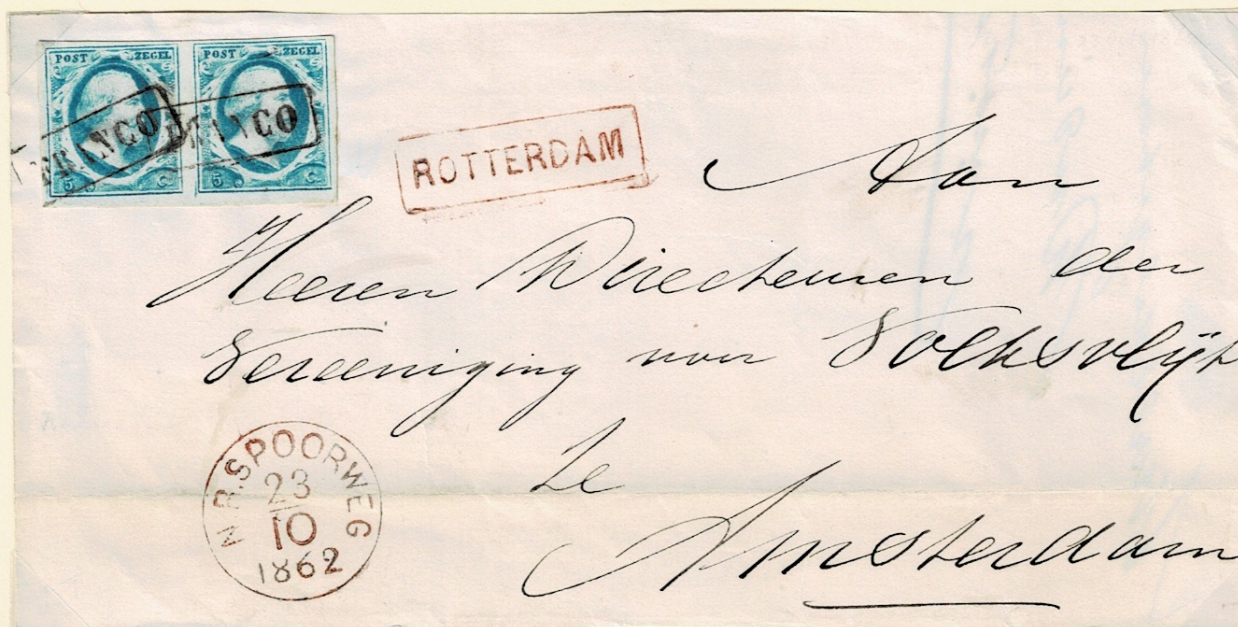 POST ZEGEL POST ZEGEL
FRANCO FRANCO
5 C 5 C
ROTTERDAM
Aan
Heeren Directeuren der
Vereeniging voor Volksvlijt
te
Amsterdam
N.R.SPOORWEG
23
10
1862